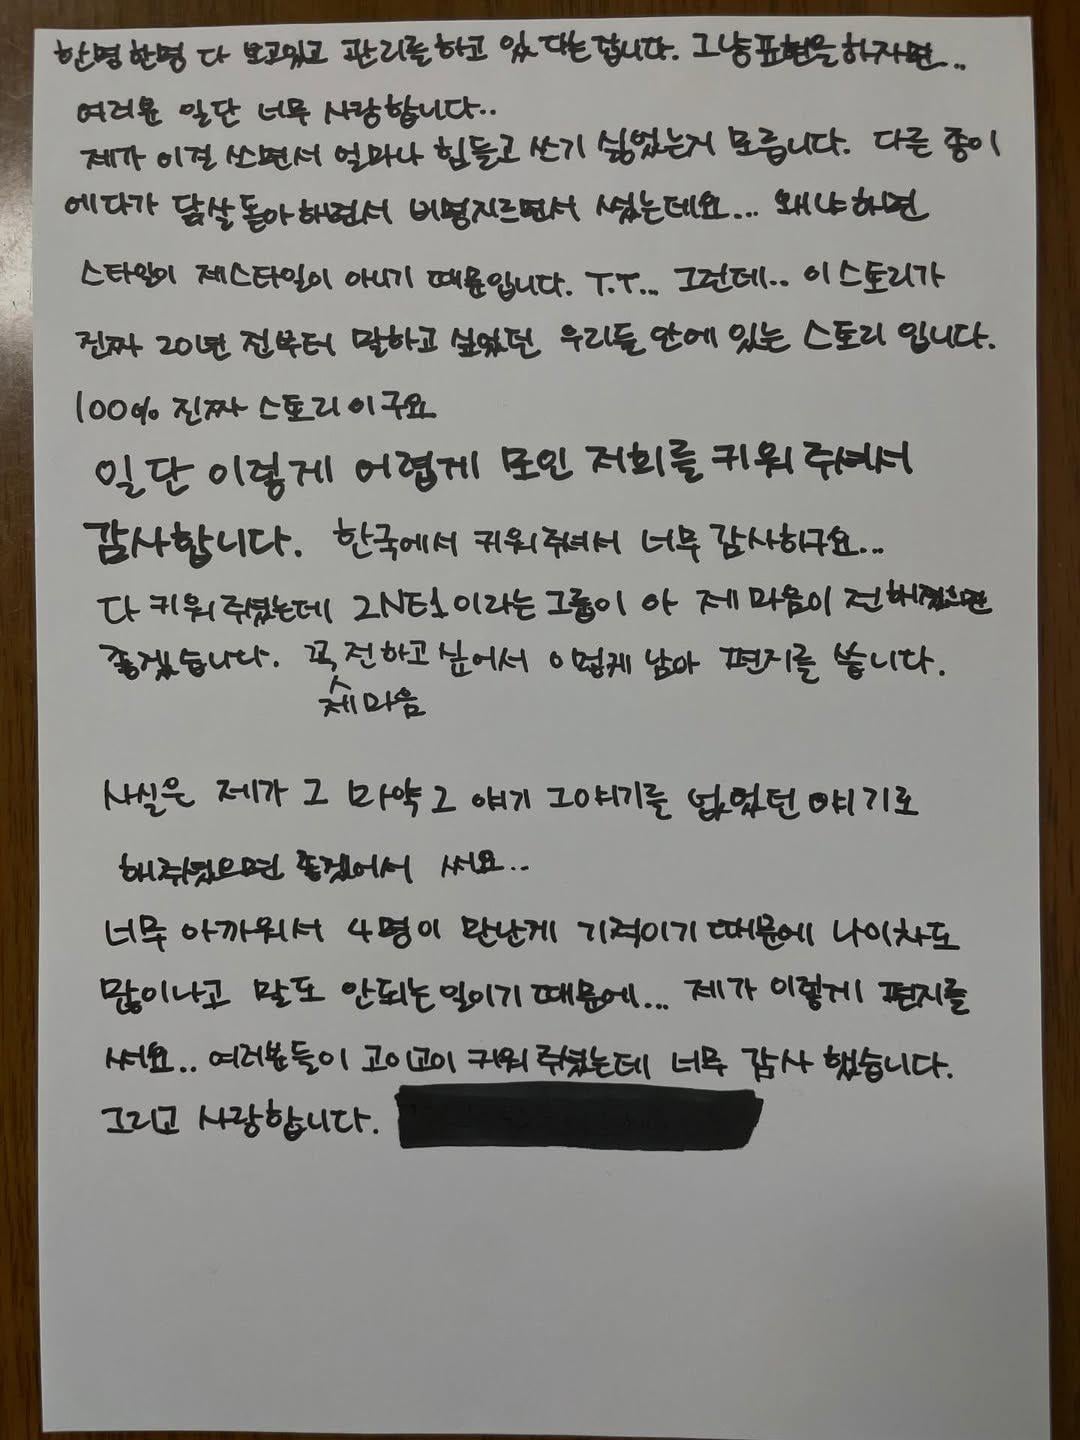 한명한명 다 보고있고 관리를하고 있다는 겁니다. 그냥표현을하자면...
여러분 일단 너무 사랑합니다..
제가 이걸 쓰면서 얼마나 힘들고 쓰기 싫었는지 모릅니다. 다른 종이
에다가 닭살돋아 하면서 비명지르면서 썼는데요... 왜냐하면
스타일이 제스타일이 아니기 때문입니다. T.T... 그런데.. 이스토리가
진짜 20년 전부터 말하고 싶었던 우리들 안에 있는 스토리 입니다.
100% 진짜 스토리이구요
일단 이렇게 어렵게 모인 저희를 키워주셔서
감사합니다. 한국에서 키워주셔서 너무 감사하구요...
다 키워주셨는데 2NE1이라는그룹이 아 제 마음이 전해졌으면
좋겠습니다. 꼭 전하고싶어서 이렇게 남아 편지를 씁니다.
제마음
사실은 제가 그 마약그 얘기 그얘기를 없었던 얘기로
해주셨으면 좋겠어서 써요..
너무 아까워서 4명이 만난게 기적이기 때문에 나이차도
많이나고 말도 안되는일이기때문에... 제가 이렇게 편지를
써요.. 여러분들이 고이고이 키워주셨는데 너무 감사했습니다.
그리고 사랑합니다.